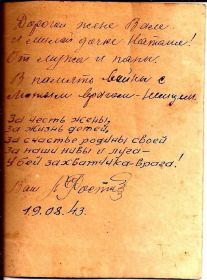 Дорогой жене Вале
и милой дочке Наташе!
От мужа и папы.
В память войны с
лютым врагом-немцем.
За честь жены,
За жизнь детей,
За счастье родины своей
За наши нивы и луга—
Убей захватчика-врага!
Ваш
19.08.43.